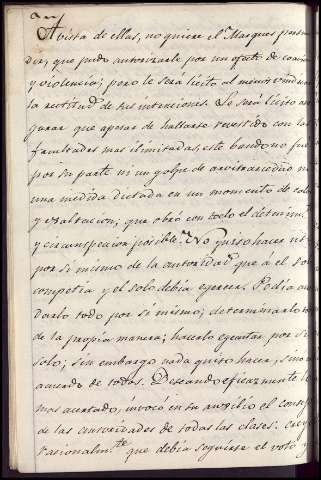 A vista de ellas, no quiere el Marques
que pudo autorizarle por un efecto de
y violencia; pero le será lícito al menos
la rectitud de sus intenciones. Le será lícito
gurar que apesar de hallarse revestido con las
facultades mas ilimitadas, este bando no fué
por su parte ni un golpe de arvitrariedad ni
una medida dictada en un momento de calor
y exaltacion; que obró con todo el
y circunspeccion posible. No quiso hacer
por sí mismo de la autoridad que á el solo
competía y el solo debía egercer. Podía
darlo todo por sí mismo; determinarlo
de la propia manera; hacerlo egecutar por sí
solo; sin embargo nada quiso hacer, sino
acuerdo de todos. Deseando eficazmente lo
mas acertado, invocó en su auxilio el
de las autoridades de todas las clases: creyó
racionalm.te que debía seguirse el voto y